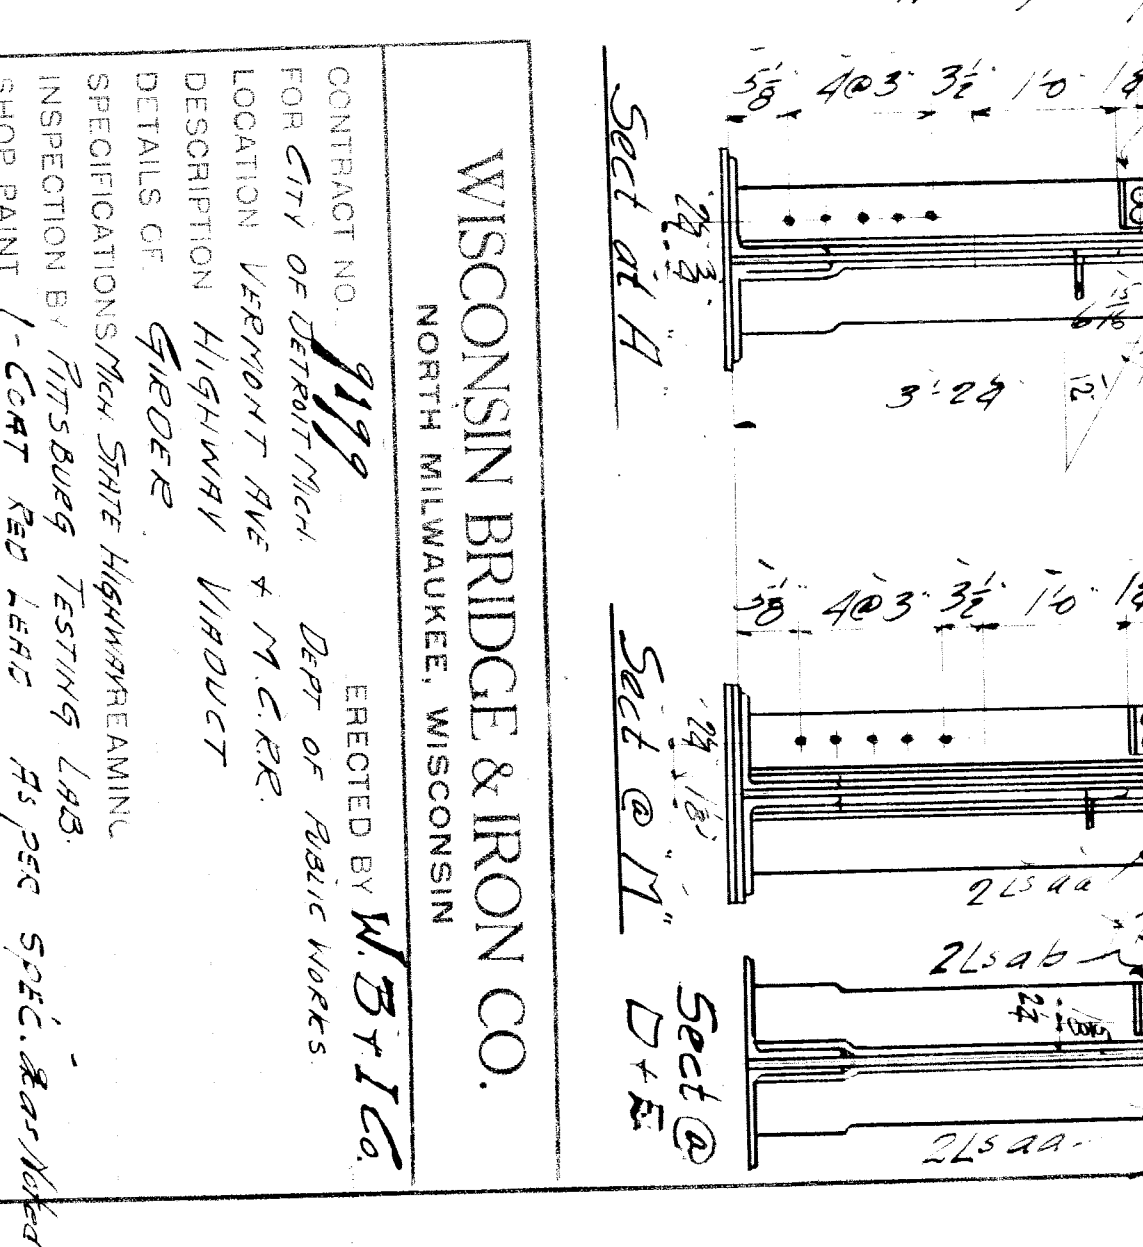 WISCONSIN BRIDGE & IRON CO.
NORTH MILWAUKEE, WISCONSIN
CONTRACT NO. 9199 ERECTED BY W. B & I Co.
FOR CITY OF DETROIT MICH. DEPT OF PUBLIC WORKS.
LOCATION VERMONT AVE & M.C.R.R.
DESCRIPTION HIGHWAY VIADUCT
DETAILS OF. GIRDER
SPECIFICATIONS MICH STATE HIGHWAY REAMING
INSPECTION BY PITTSBURG TESTING LAB.
SHOP PAINT 1-COAT RED LEAD AS PER SPEC. & as Noted
5 1/8 4@3" 3 1/2" 1'-0"
3'-2 1/4
12
Sect at A
5 1/8 4@3" 3 1/2" 1'-0"
2 Ls aa
Sect @ "M"
2Ls ab
2Ls aa
Sect @
D & E